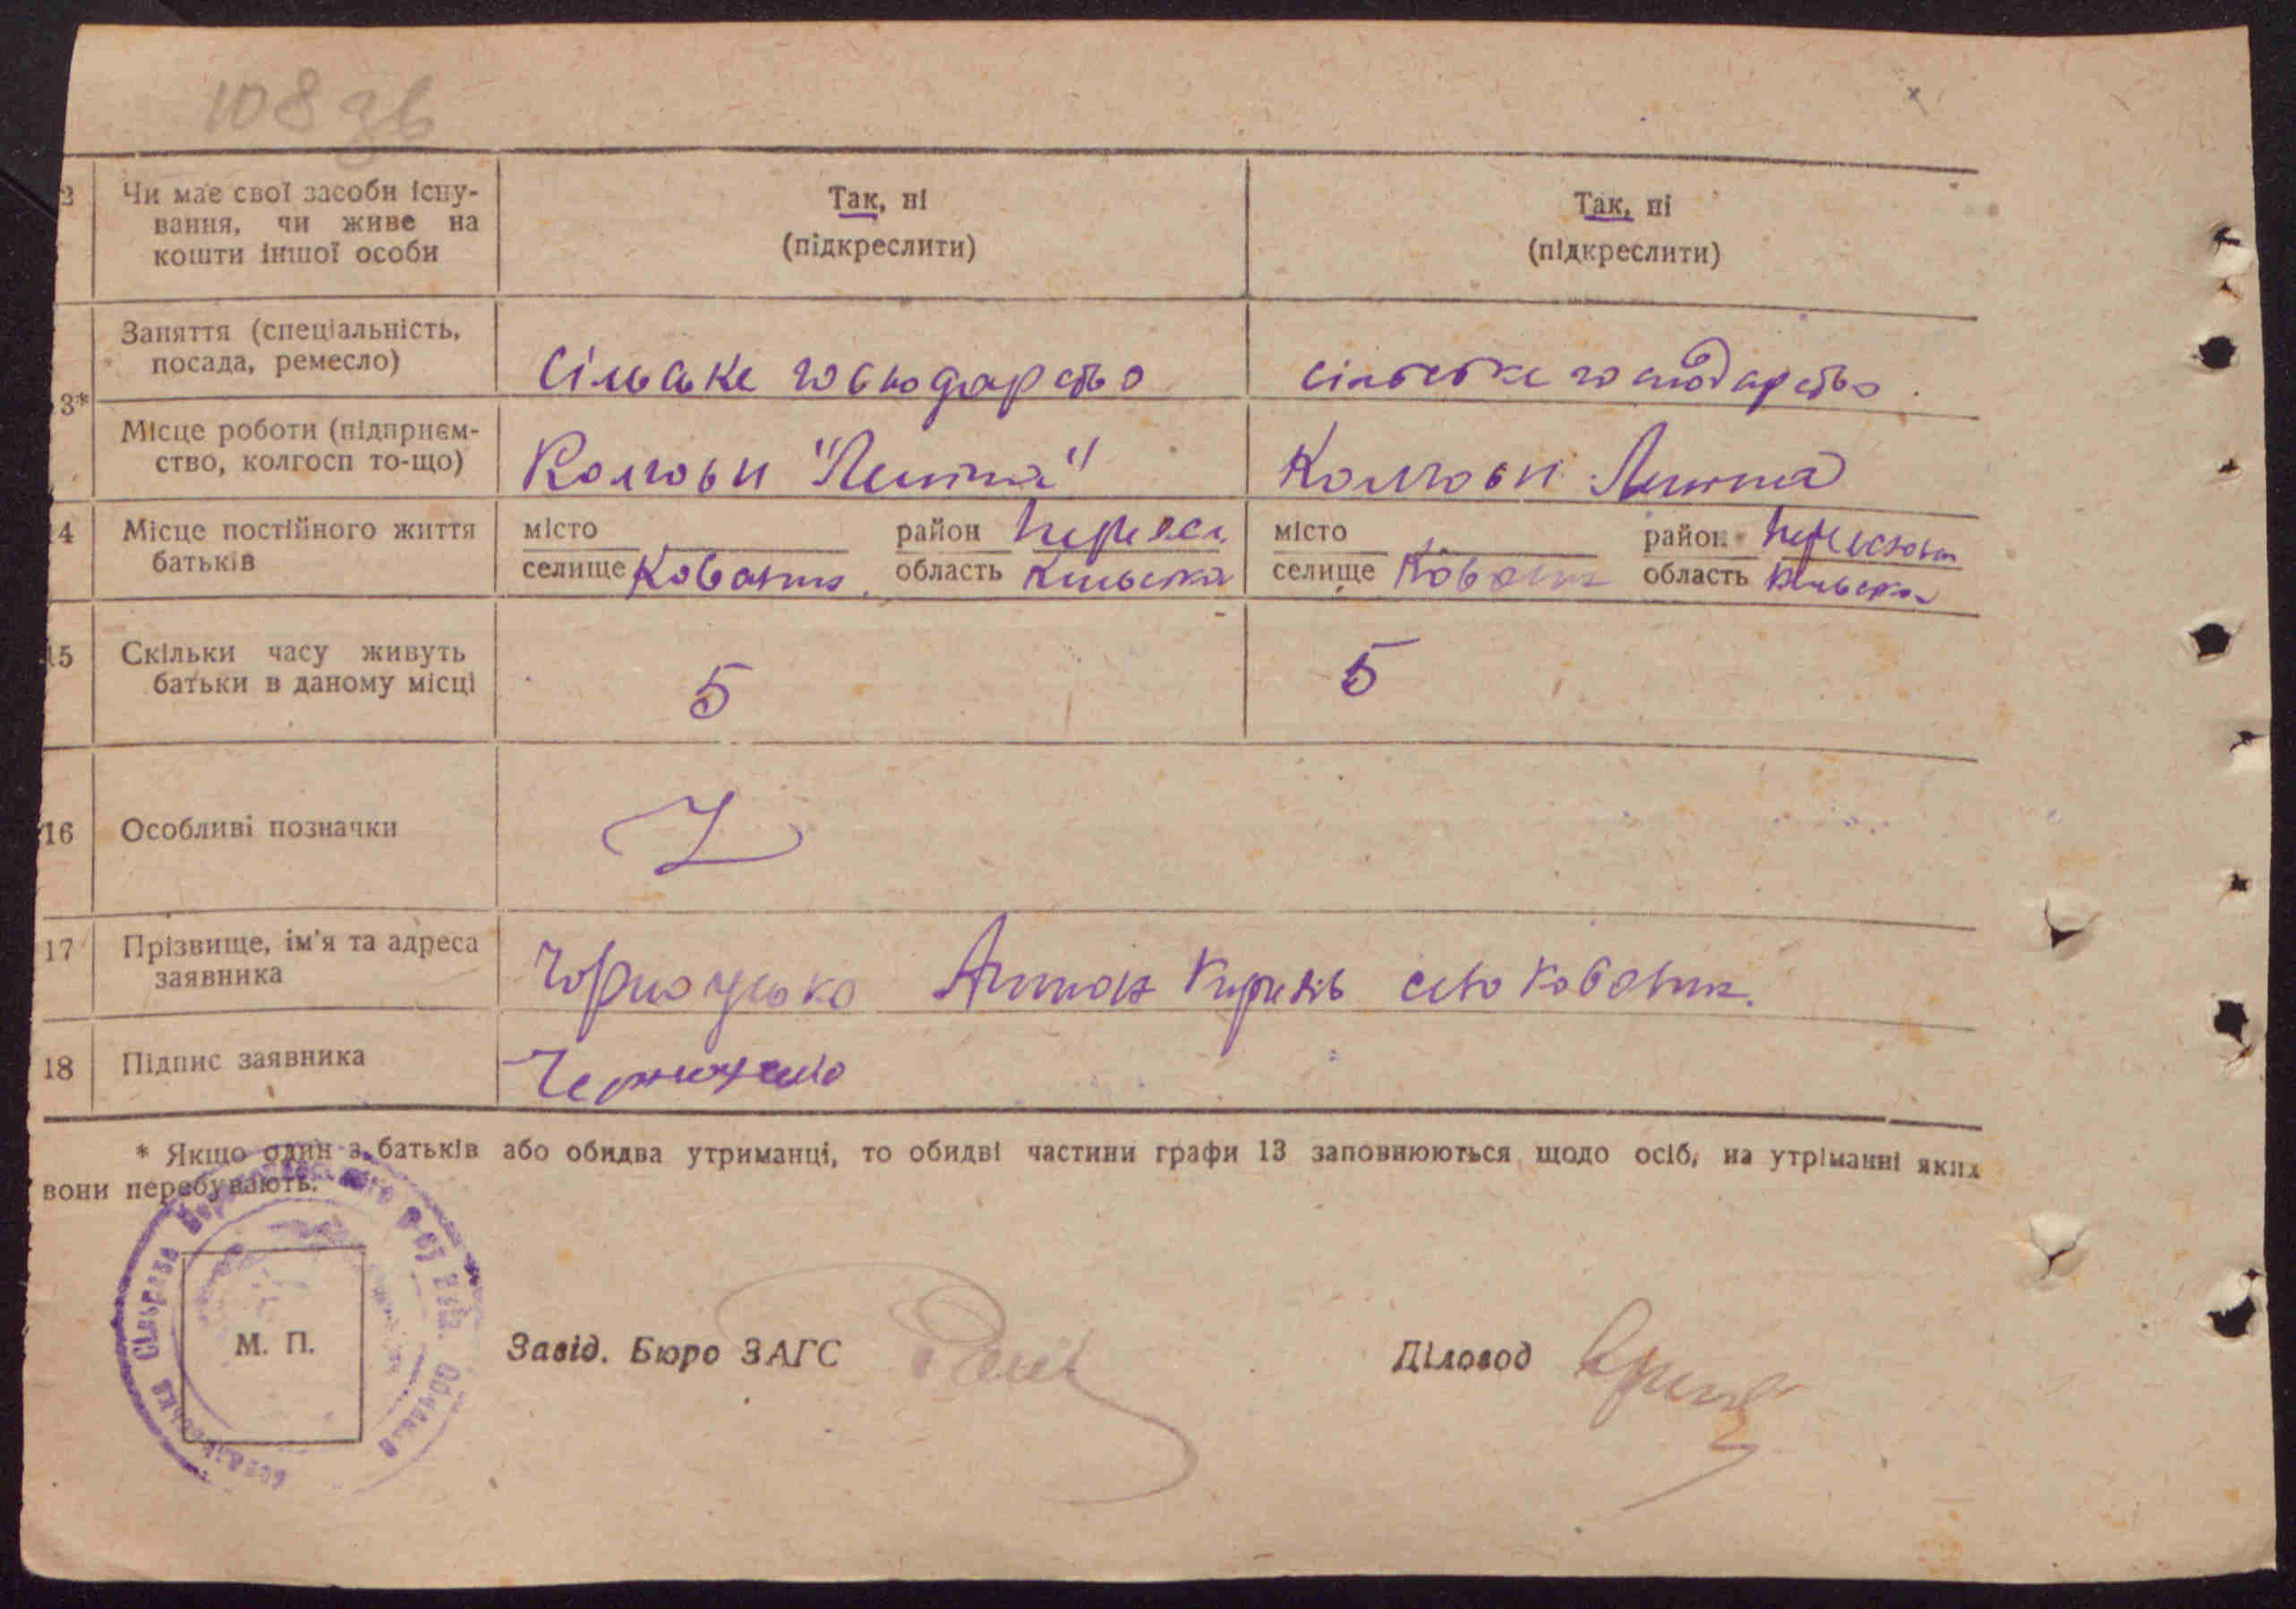 108 зв
Чи має свої засоби існу-
вання, чи живе на
кошти іншої особи
Так, ні
(підкреслити)
Так, ні
(підкреслити)
3*
Заняття (спеціальність,
посада, ремесло)
Сільське господарство
сільське господарство
Місце роботи (підприєм-
ство, колгосп то-що)
Колгосп "Леніна"
Колгосп Леніна
14
Місце постійного життя
батьків
місто
район
селище Ковалин
область Київська
місто
район
селище Ковалин
область Київська
15
Скільки часу живуть
батьки в даному місці
5
5
16
Особливі позначки
17
Прізвище, ім'я та адреса
заявника
Антон село Ковалин.
18
Підпис заявника
* Якщо один з батьків або обидва утриманці, то обидві частини графи 13 заповнюються щодо осіб, на утріманні яких
вони перебувають.
Сільрада
М. П.
Завід. Бюро ЗАГС
Діловод